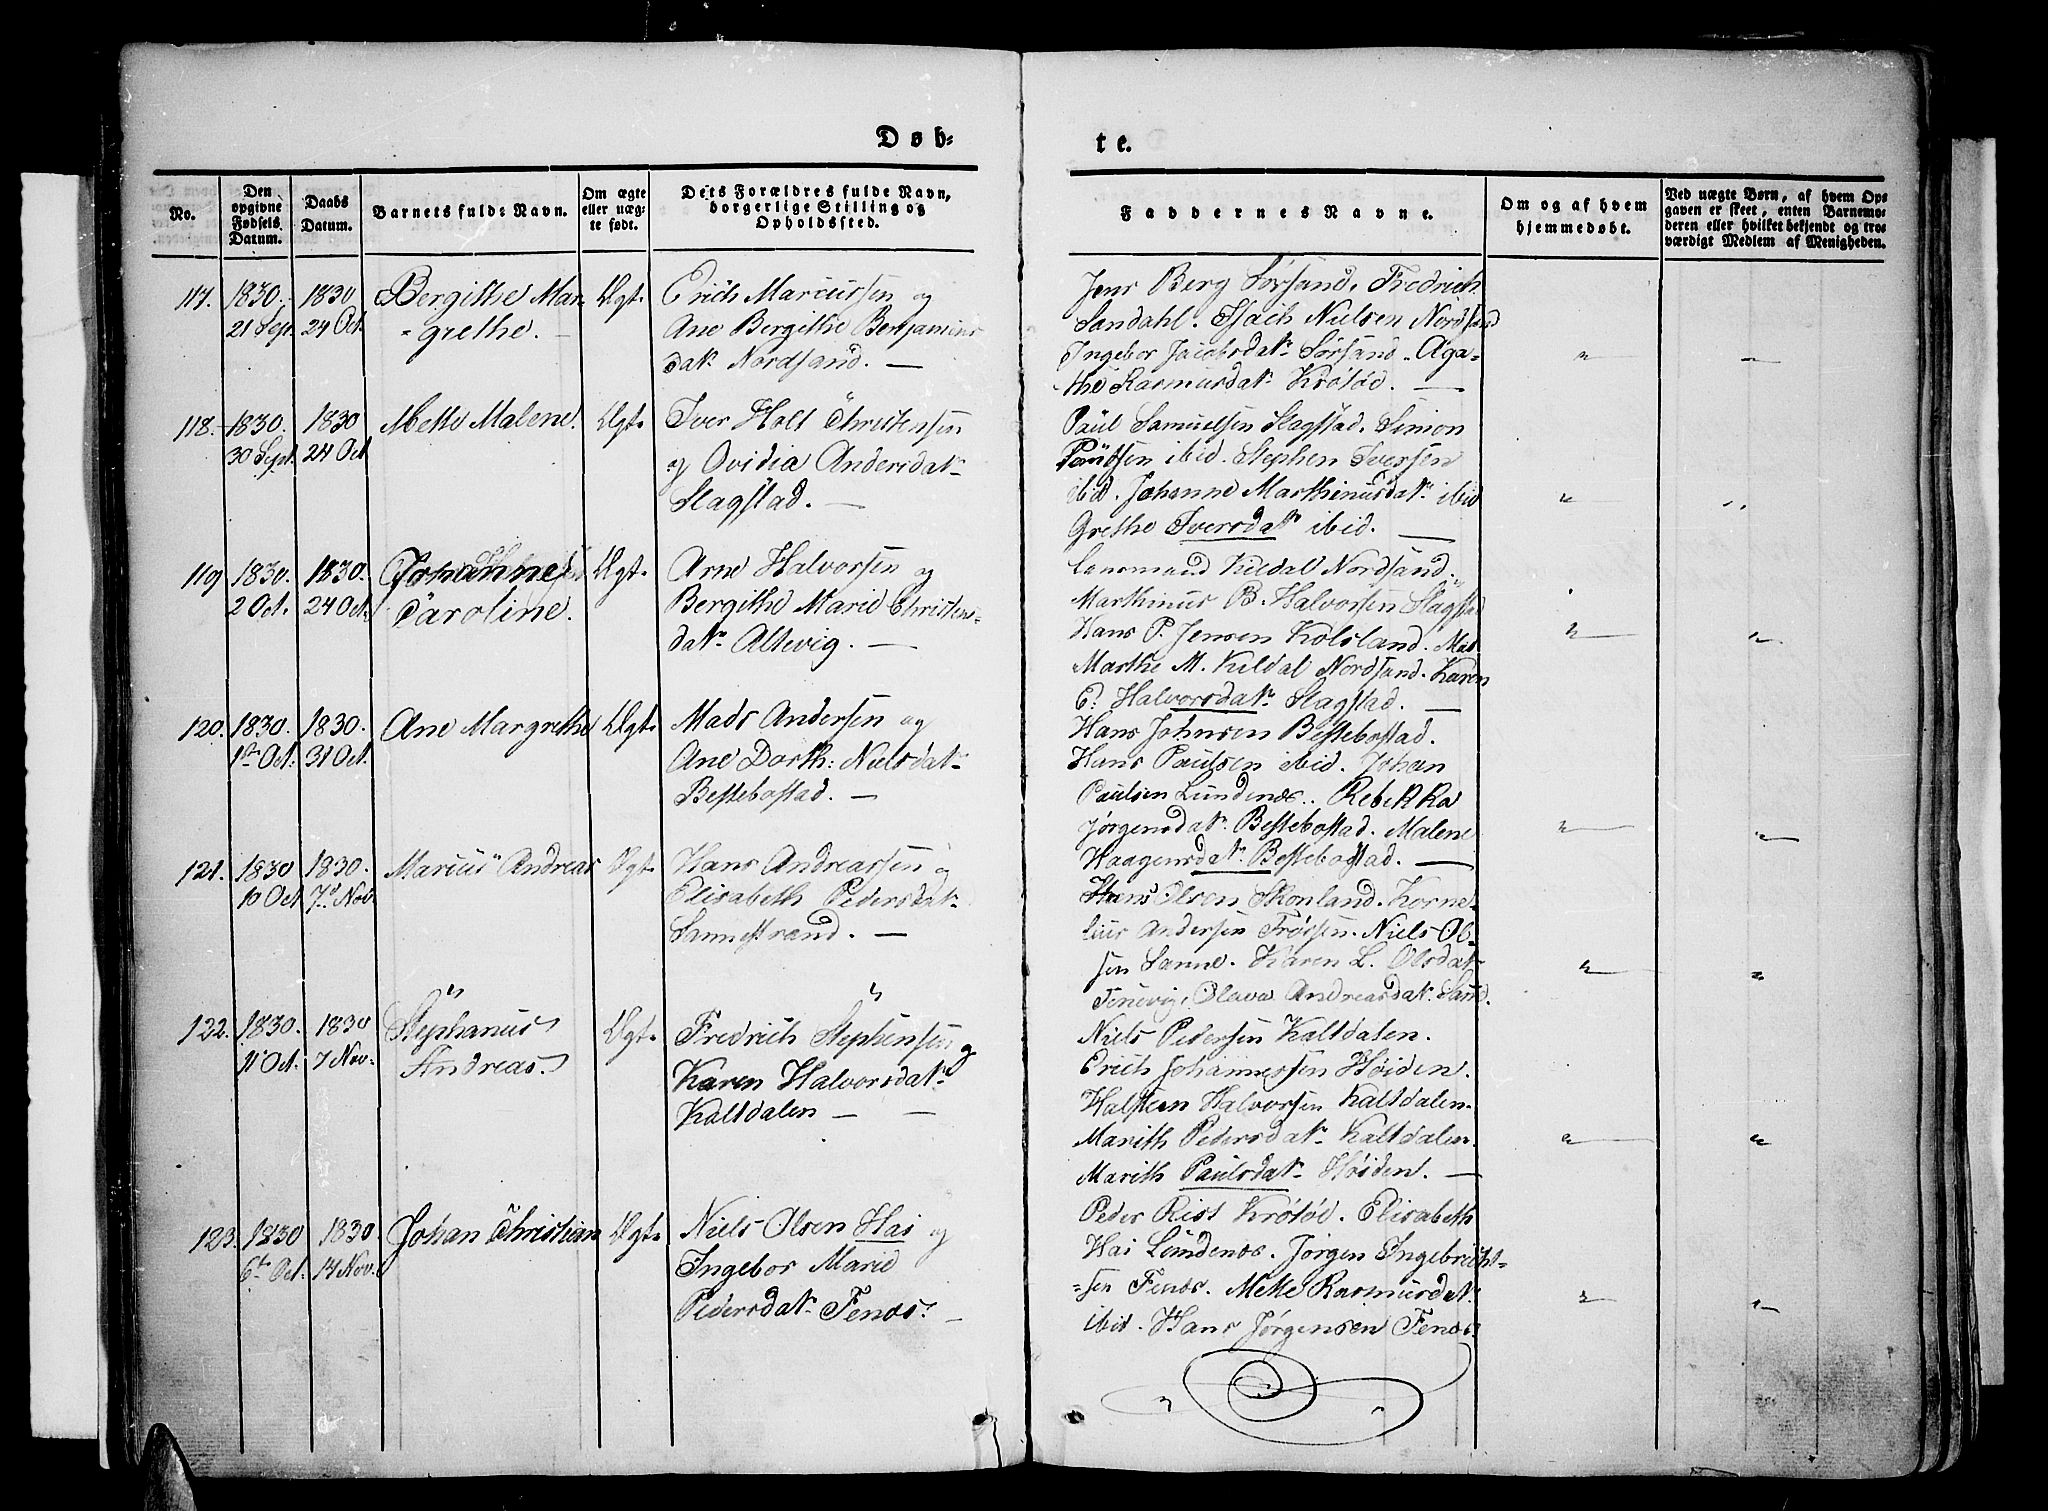 Døb=
te.
No.
Den opgivne Fødsels Datum.
Daabs Datum.
Barnets fulde Navn.
Om ægte eller uægte født.
Dets Forældres fulde Navn, borgerlige Stilling og Opholdssted.
Faddernes Navne.
Om og af hvem hjemmedøbt.
Ved uægte Børn, af hvem Opgaven er skeet, enten Barnemoderen eller hvilket bekjendt og troværdigt Medlem af Menigheden.
117. 1830. 1830 Bergithe Mar- Ægt. Erich Marcussen og
21 Sep. 24 Oct. grethe. Ane Bergithe Benjamins
datr Nordsand.
Jens Berg Sørsand. Fredrich
Sandahl. Isach Nielsen Nordsand
Ingebor Jacobsdatr Sørsand. Aga-
the Rasmusdatr Krøtøe.
118. 1830. 1830 Mette Malene. Ægt. Iver Holt Christensen
30 Sept. 24 Oct og Ovidia Andersdatr
Slagstad.
Paul Samuelsen Slagstad. Simon
Paulsen ibid. Stephen Iversen
ibid. Johanne Marthinusdatr ibid
Grethe Iversdatr ibid.
119 1830. 1830. Johanne Ægt. Arne Halvorsen og
2 Oct. 24 Oct. Caroline. Bergithe Marie Christens-
datr Altevig.
Lensmand Kildal Nordsand.
Marthinus B. Halvorsen Slagstad
Hans P. Jensen Kolsland. Mad.
Marthe M. Kildal Nordsand. Karen
E. Halvorsdatr Slagstad.
120. 1830. 1830. Ane Margrethe Ægt. Mads Andersen og
1ste Oct. 31 Oct. Ane Dorth: Nielsdatr
Bessebostad.
Hans Johnsen Bessebostad.
Hans Paulsen ibid. Johan
Paulsen Lundenæs. Rebekka
Jørgensdatr Bessebostad. Malene
Haagensdatr Bessebostad.
121. 1830 1830. Marcus Andreas Ægt. Hans Andreassen og
10 Oct 7de Nov. Elisabeth Pedersdatr
Sannestrand.
Hans Olsen Skonland. Korne-
lius Andersen Trøssen. Niels Ol-
sen Sanne. Karen L. Olsdatr
Tenevig, Olava Andreasdatr Sand.
122. 1830. 1830 Stephanus Ægt. Fredrich Stephensen og
11 Oct. 7 Nov. Andreas. Karen Halvorsdatr
Kaltdalen
Niels Pedersen Kaltdalen.
Erich Johannessen Høiden.
Halsten Halvorsen Kaltdalen.
Marith Pedersdatr Kaltdalen.
Marith Paulsdatr Høiden.
123. 1830 1830 Johan Christian Ægt. Niels Olsen Hai og
6te Oct. 14 Nov. Ingebor Marie
Pedersdatr Fenæs.
Peder Rist Krøtøe. Elisabeth
Hai Lundenæs. Jørgen Ingebricht-
sen Fenæs. Mette Rasmusdatr
ibid. Hans Jørgensen Fenæs.